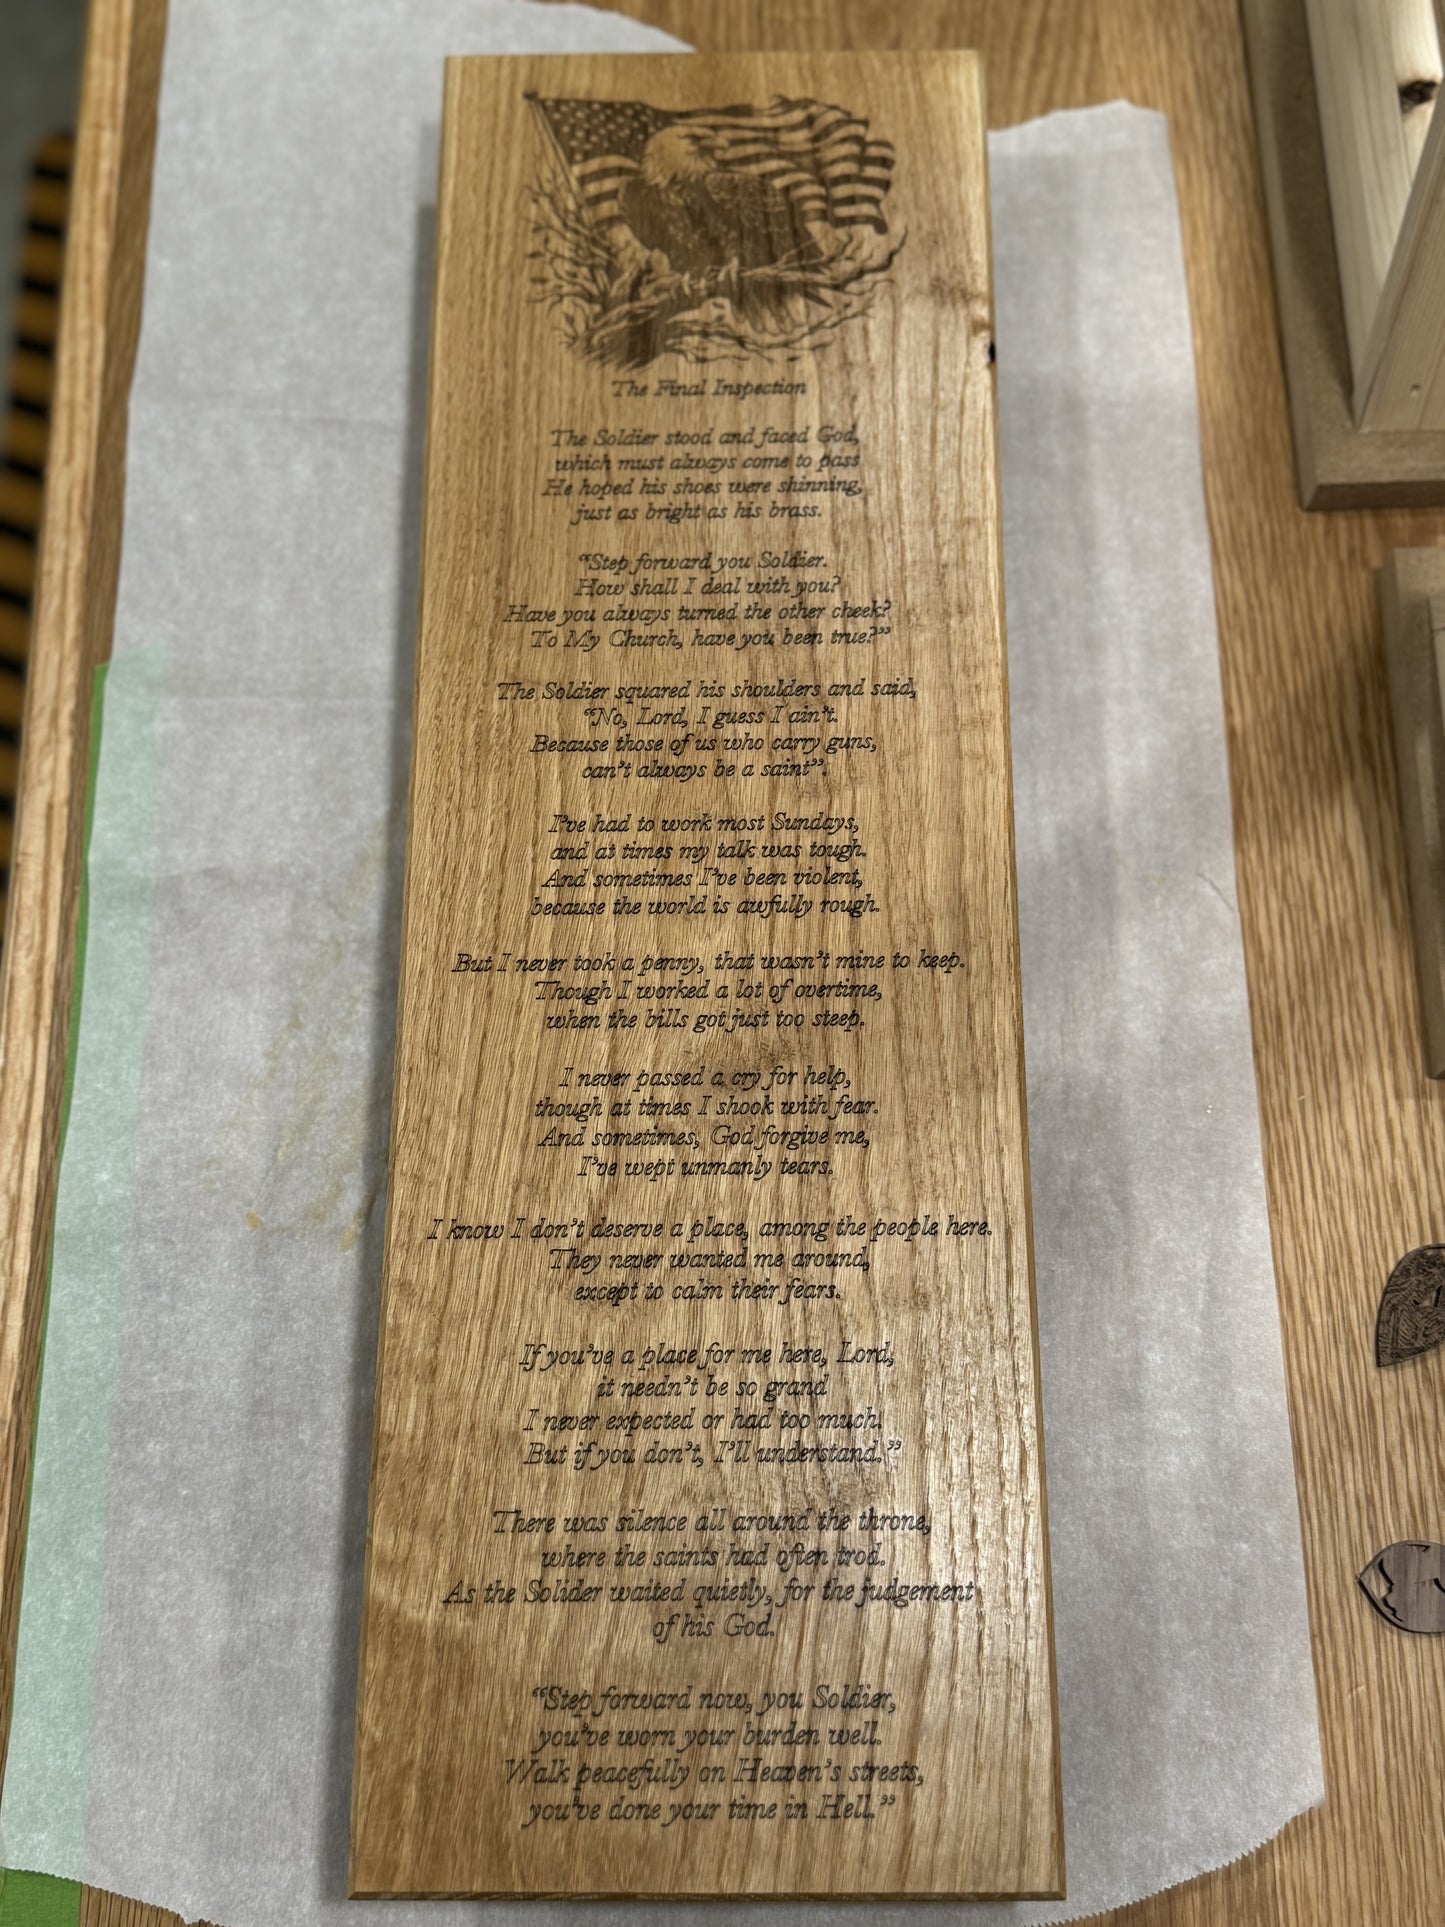 The Final Inspection
The Soldier stood and faced God,
which must always come to pass
He hoped his shoes were shinning,
just as bright as his brass.
“Step forward you Soldier.
How shall I deal with you?
Have you always turned the other cheek?
To My Church, have you been true?”
The Soldier squared his shoulders and said,
“No, Lord, I guess I ain’t.
Because those of us who carry guns,
can’t always be a saint”.
I’ve had to work most Sundays,
and at times my talk was tough.
And sometimes I’ve been violent,
because the world is awfully rough.
But I never took a penny, that wasn’t mine to keep.
Though I worked a lot of overtime,
when the bills got just too steep.
I never passed a cry for help,
though at times I shook with fear.
And sometimes, God forgive me,
I’ve wept unmanly tears.
I know I don’t deserve a place, among the people here.
They never wanted me around,
except to calm their fears.
If you’ve a place for me here, Lord,
it needn’t be so grand
I never expected or had too much.
But if you don’t, I’ll understand.”
There was silence all around the throne,
where the saints had often trod.
As the Solider waited quietly, for the judgement
of his God.
“Step forward now, you Soldier,
you’ve worn your burden well.
Walk peacefully on Heaven’s streets,
you’ve done your time in Hell.”